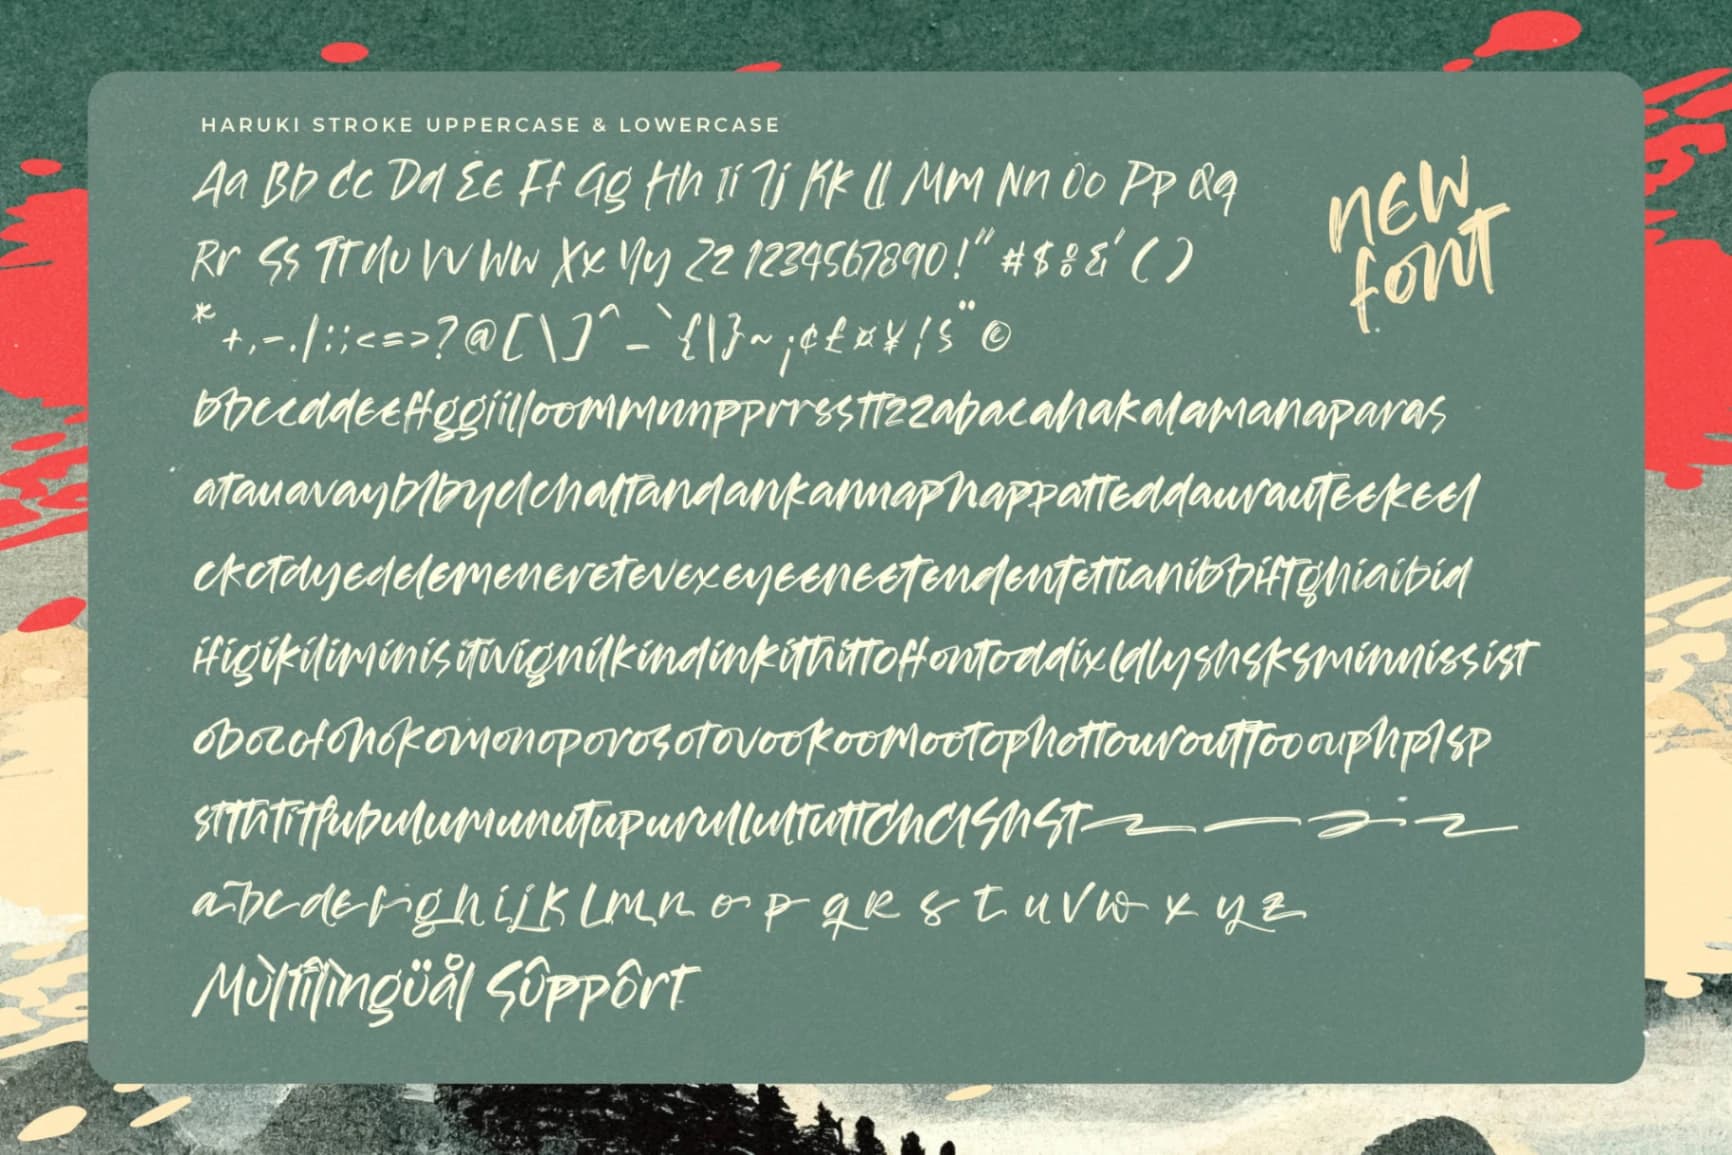 HARUKI STROKE UPPERCASE & LOWERCASE
Aa Bb Cc Dd Ee Ff Gg Hh Ii Jj Kk Ll Mm Nn Oo Pp Qq
Rr Ss Tt Uu Vv Ww Xx Yy Zz 1234567890!" #$%&'()
*+,-./:;<=>?@[\]^_`{|}~¡¢£¤¥¦§¨©
new
font
bbccddeeffggiilloommnnpprrssttzzabacahakalamanaparas
atauavayblbyclchaltandankannaphappatteddaurauteekeel
ckctdyedelemeneretevexeyeeneetendentettianibbiftghiaibid
ifigikiliminisitivignilkindinkithittoffontoddixldlyshsksminnissist
obocofohokomonoporosotovookoomootophottourouttooouphplsp
stthtitfubulumunutupurullultuttChClShSt
abcdefghijklmnopqrstuvwxyz
Mùltîlìngüål Sûppôrt